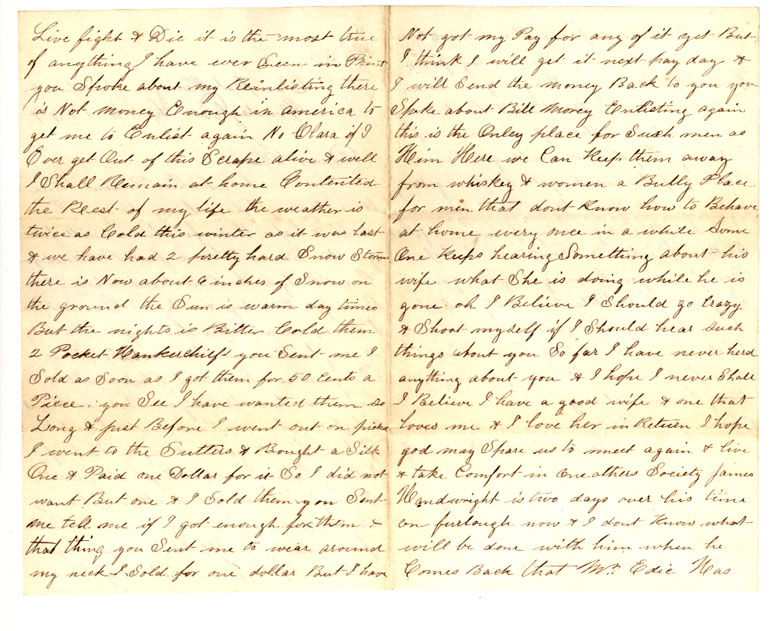 Live fight & Die it is the most true
of anything I have ever Seen in Print
you Spoke about my Reinlisting there
is Not money Enough in america to
get me to Enlist again No Clara if I
Ever get Out of this Scrape alive & well
I Shall Remain at home Contented
the Rest of my life the weather is
twice as Cold this winter as it was last
& we have had 2 pretty hard Snow Storms
there is Now about 6 inches of Snow on
the ground the Sun is warm day times
But the nights is Bitter Cold them
2 Pocket Hankerchiefs you Sent me I
Sold as Soon as I got them for 50 cents a
Piece. you See I have wanted them so
Long & just Before I went out on picket
I went to the Sutters & Bought a Silk
One & Paid one Dollar for it So I did not
want But one & I Sold them you Sent
me tell me if I got enough for them &
that thing you Sent me to wear around
my neck I Sold for one dollar But I have
Not got my Pay for any of it yet But
I think I will get it next pay day &
I will Send the money Back to you you
Spoke about Bill Morey Enlisting again
this is the Onley place for Such men as
Him Here we Can Keep them away
from whiskey & women a Bully Place
for men that dont Know how to Behave
at home every once in a while Some
One Keeps hearing Something about his
wife what She is doing while he is
gone oh I Believe I Should go Crazy
& Shoot myself if I Should hear such
things about you So far I have never herd
anything about you & I hope I never Shall
I Believe I have a good wife & one that
loves me & I love her in Return I hope
god may Spare us to meet again & live
& take Comfort in oneathers Society James
is two days over his time
on furlough now & I dont Know what
will be done with him when he
Comes Back that Mr. Edie Has